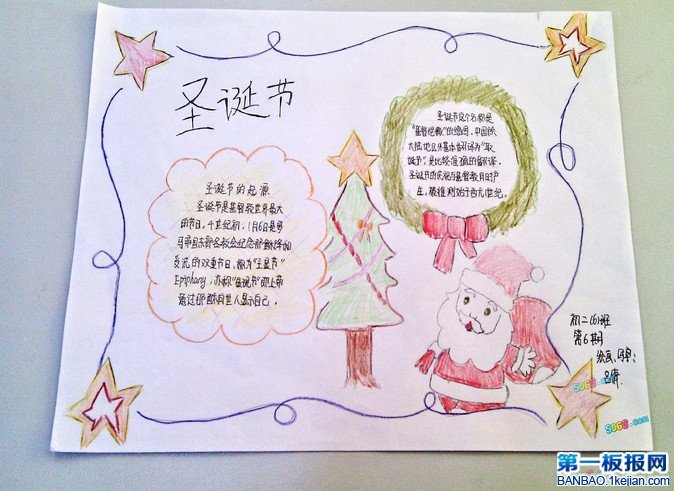 圣诞节
圣诞节的起源
圣诞节是基督教世界最大
的节日。4世纪初，1月6日是罗
马帝国东部各教会纪念耶稣降临和
受洗的双重节日、称为"主显节"
Epiphany，亦称"显现节"即上帝
通过耶稣向世人显示自己。
圣诞节这个名称是
"基督弥撒"的缩写。中国除
大陆地区外基本翻译为"耶
诞节"，是比较准确的翻译。
圣诞节的
初二(6)班
第6期
第一板报网
BANBAO.1kejian.com